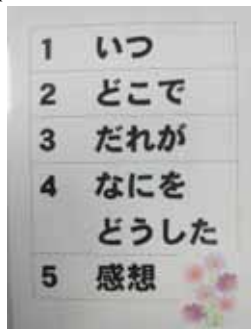 1 いつ
2 どこで
3 だれが
4 なにを
どうした
5 感想